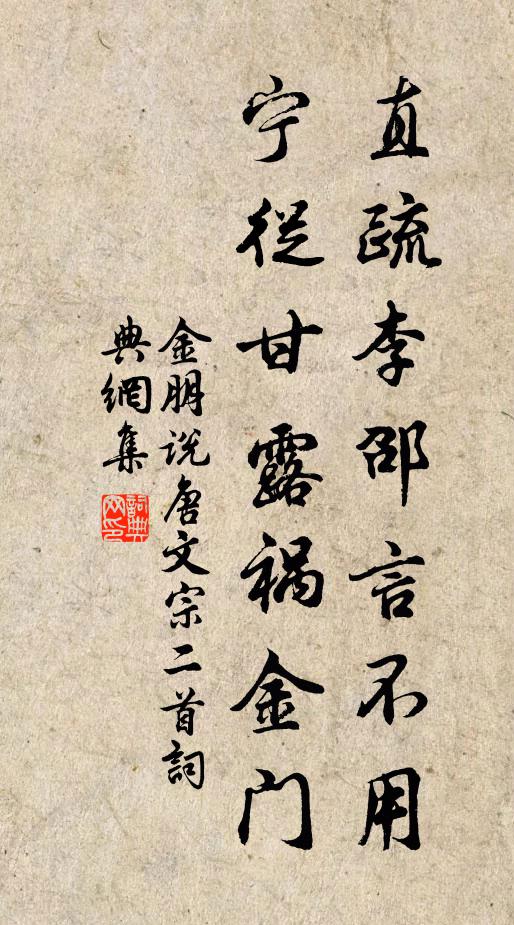 直疏李邵言不用
宁從甘露祸金门
金朋说唐文宗二首詞
典網集
詞典
网印